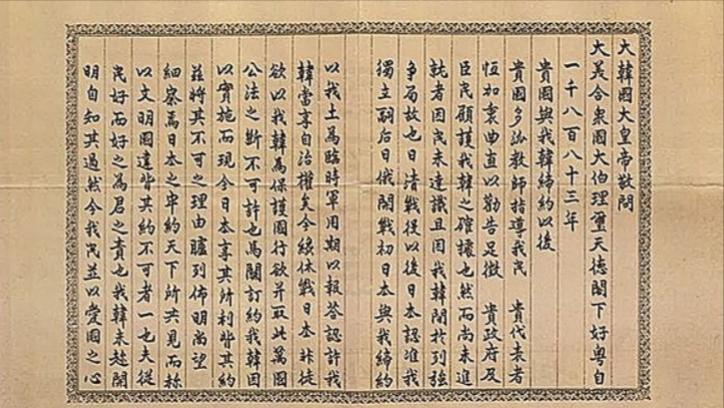 大韓國大皇帝敬問
大美合衆國大伯理璽天德閣下好粤自
一千八百八十三年
貴國與我韓締約以後
貴國多派教師指導我民 貴代表者
恒加衷曲直以勸告足徵 貴政府及
臣民顧護我韓之確據也然而尚未進
就者因民未達識且因我韓閒於列強
争局故也日清戰役以後日本認准我
獨立嗣后日俄開戰初日本與我締約
以我土為臨時軍用期以報答認許我
韓當享自治權矣今綏休戰日本非徒
欲以我韓為保護國行欲并取此萬國
公法之斷不可許也馬關訂約我韓因
以實施而現今日本享其所利背其約
茲將其不可之理由臚列佈明尚望
細察焉日本之牢約天下所共見而
以文明國違背其約不可者一也夫從
民好而好之為君之責也我韓未趍開
明自知其過然今我民並以愛國之心